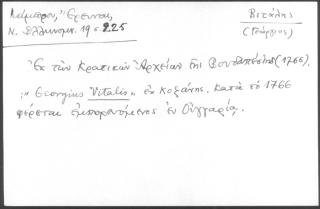 Λάμπρου, Ἔρευναι,
Ν. Ἑλληνομν. 19 σ. 225
Βιτάλης
(Γεώργιος)
Ἐκ τῶν Κρατικῶν Ἀρχείων τῆς Βουδαπέστης (1766).
"Georgius Vitalis" ἐκ Κοζάνης. Κατὰ τὸ 1766
φέρεται ἐμπορευόμενος ἐν Οὑγγαρίᾳ.